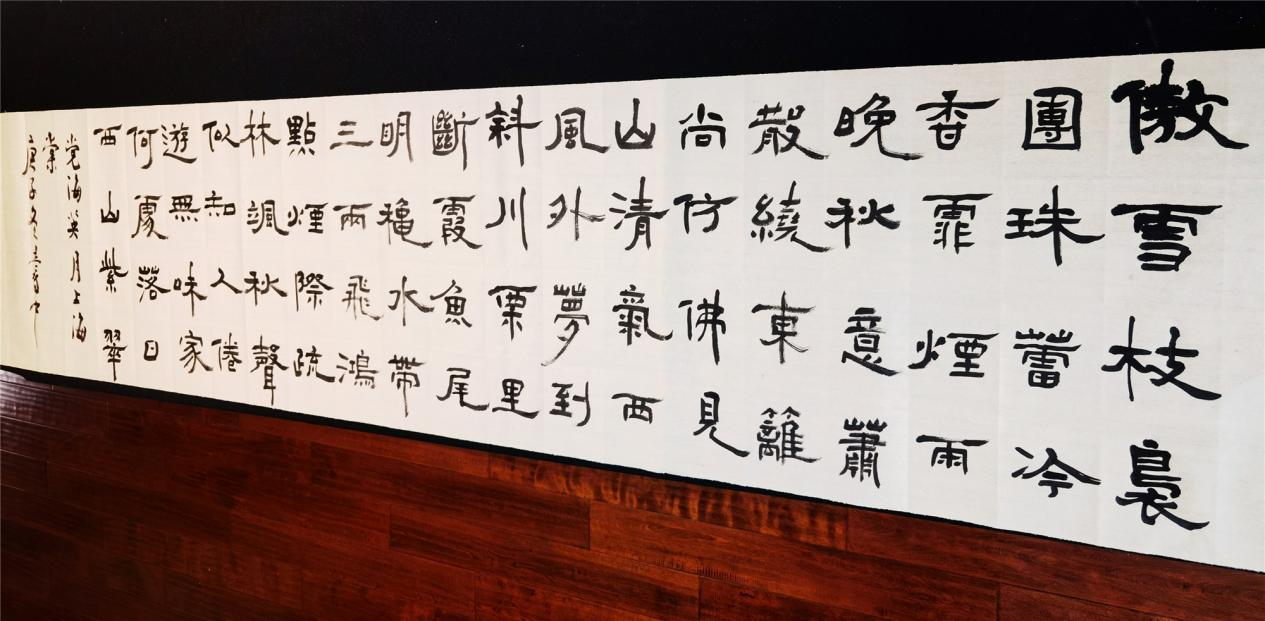 傲雪枝裊
團珠蕾冷
香霏煙雨
晚秋意蕭
散繞東籬
尚仿佛見
山清氣西
風外夢到
斜川栗里
斷霞魚尾
明穐水帶
三兩飛鴻
點煙際疏
林颯秋聲
似知人倦
遊無味家
何處落日
西山紫翠
党海英月上海
棠
庚子冬